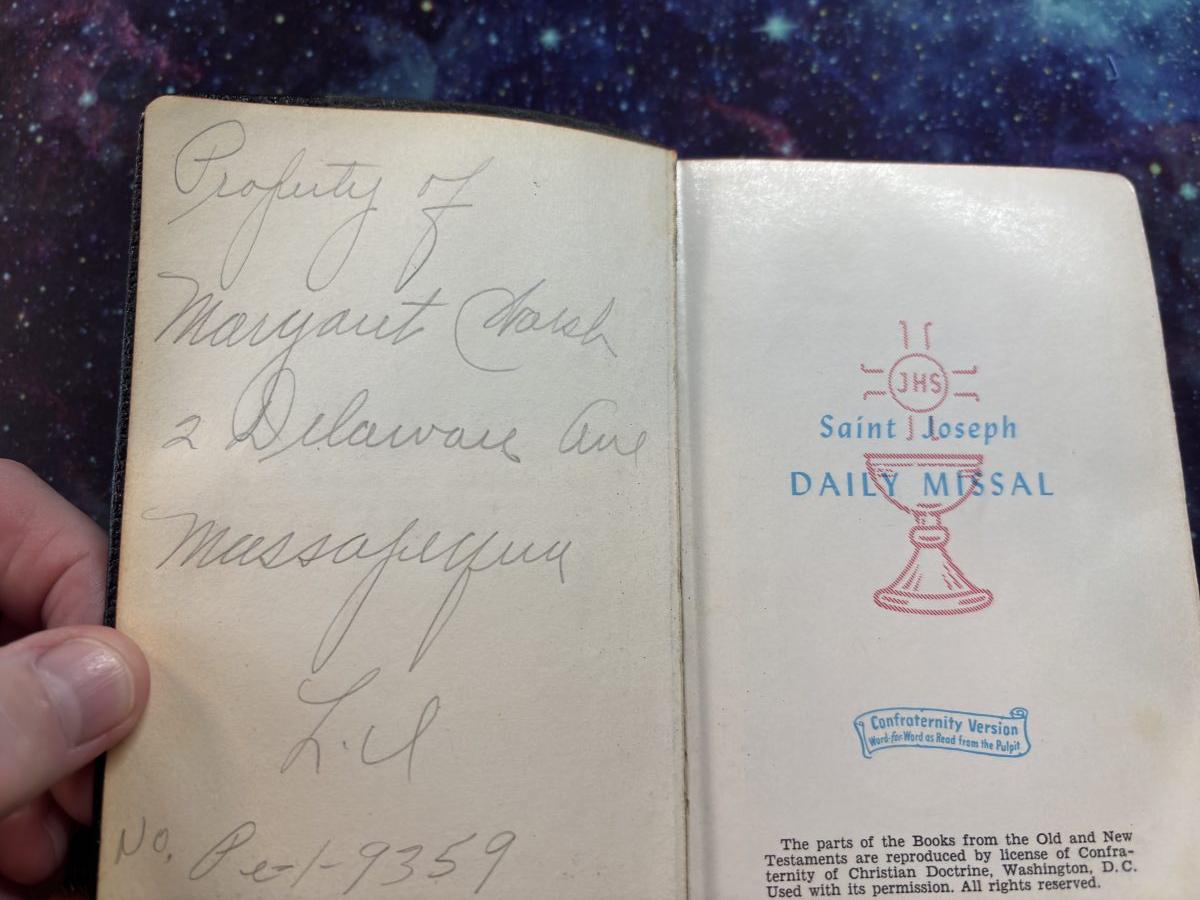 Property of
Margaret Walsh
2 Delaware Ave
Massapequa
L.I
No. Pe-1-9359
JHS
Saint Joseph
DAILY MISSAL
Confraternity Version
Word-for-Word as Read from the Pulpit
The parts of the Books from the Old and New
Testaments are reproduced by license of Confra-
ternity of Christian Doctrine, Washington, D.C.
Used with its permission. All rights reserved.